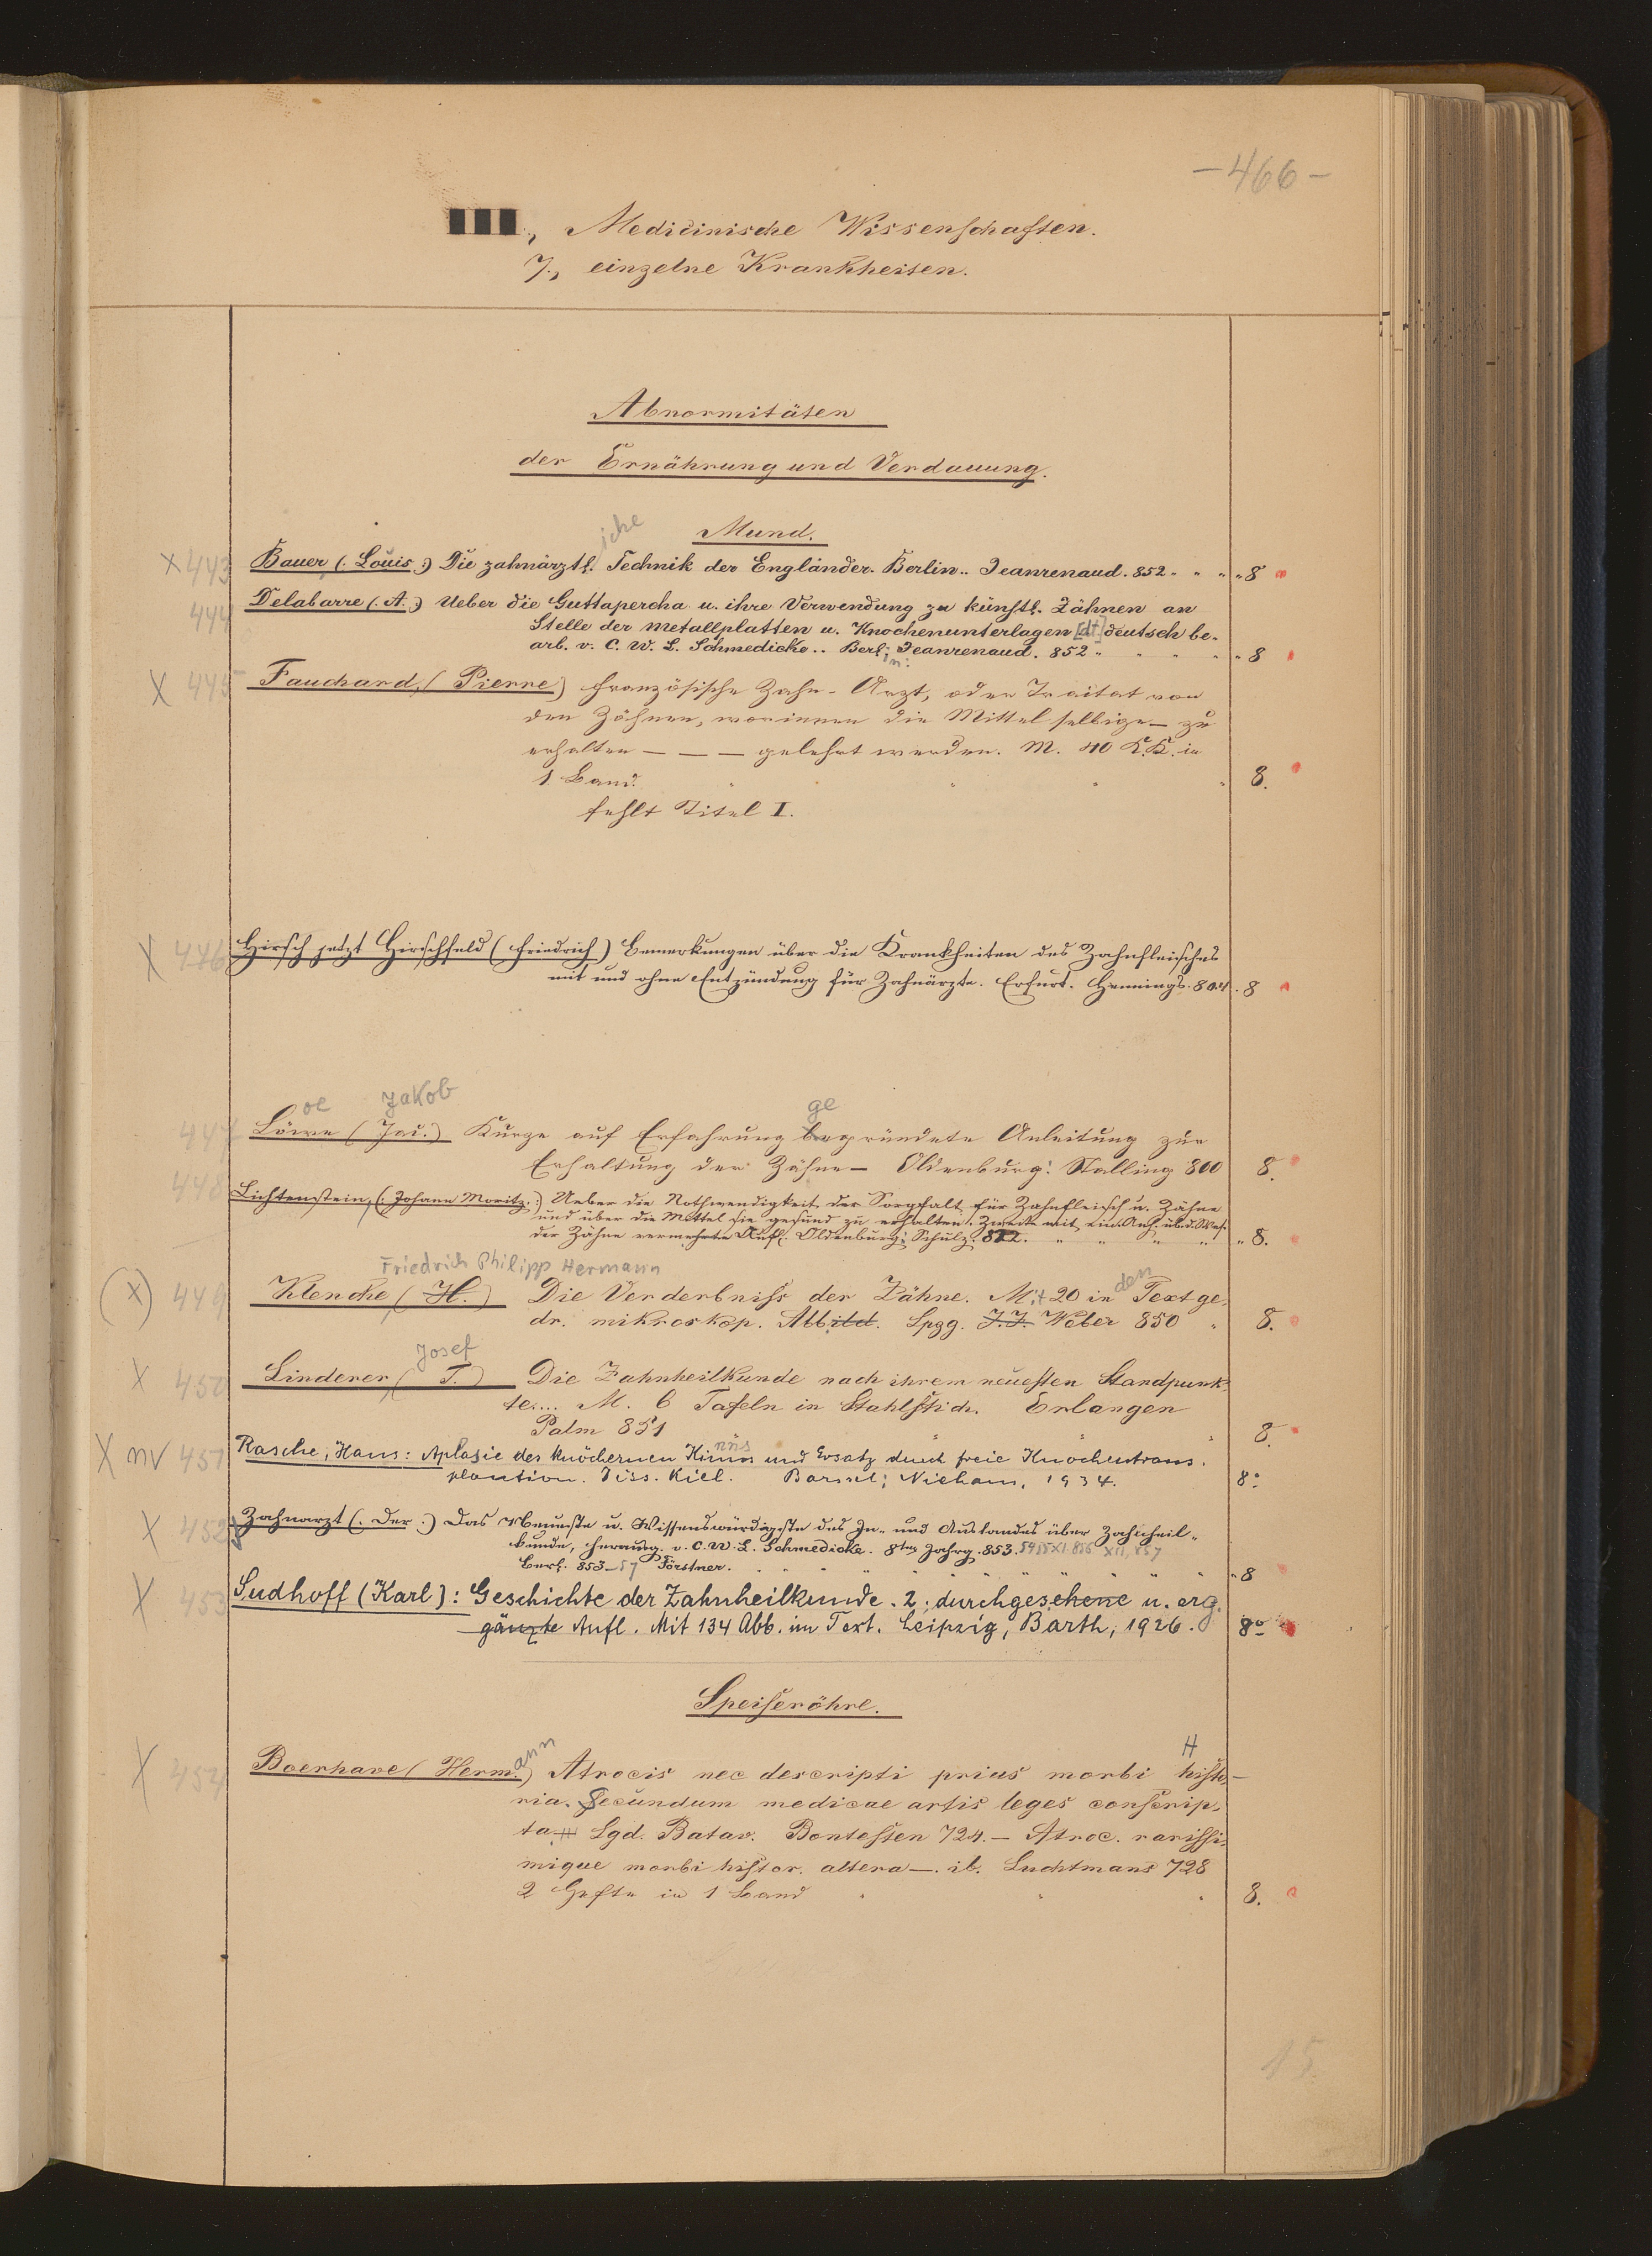 -466-
III., Medicinische Wissenschaften.
7., einzelne Krankheiten.
Abnormitäten
der Ernährung und Verdauung.
Mund.
iche
x 443 Bauer (: Louis :) Die zahnärztl. Technik der Engländer. Berlin.. Jeanrenaud. 852 " " " " 8
444 Delabarre (: A. :) Ueber die Guttapercha u. ihre Verwendung zu künstl. Zähnen an
Stelle der Metallplatten u. Knochenunterlagen [dt] deutsch be-
arb. v. C. W. L. Schmedicke .. Berl: Jeanrenaud. 852 " " " " " 8
in:
X 445 Fauchard, (Pierre) französische Zahn-Arzt, oder Traitat von
den Zähnen, worinnen die Mittel selbige — zu
erhalten — — — gelehrt werden. M. 40 K.K. in
1 Band. " " " " 8.
fehlt Titel I.
X 446 Hirsch jetzt Hirschfeld (Friedrich) Bemerkungen über die Krankheiten des Zahnfleisches
mit und ohne Entzündung für Zahnärzte. Erfurt. Hennings. 804. 8
oe Jakob ge
447 Löwe (Jac.) Kurze auf Erfahrung begründete Anleitung zur
Erhaltung der Zähne — Oldenburg: Stalling 800 8.
448 Lichtenstein, (: Johann Moritz :) Ueber die Nothwendigkeit der Sorgfalt für Zahnfleisch u. Zähne
und über die Mittel sie gesund zu erhalten. Zweite mit ein. Anh. üb. d. Wes.
der Zähne vermehrte Aufl. Oldenburg: Schulz. 822. " " " " " 8.
Friedrich Philipp Hermann den
(x) 449 Klencke (H.) Die Verderbniss der Zähne. Mit 20 in Text ge-
dr. mikroskop. Abbild. Lpzg. J.J. Weber 850 " 8.
Josef
X 450 Linderer (J.) Die Zahnheilkunde nach ihrem neuesten Standpunk-
te.... M. 6 Tafeln in Stahlstich. Erlangen
Palm 851 " " 8.
nns
X nv 451 Rasche, Hans: Aplasie des knöchernen Kinns und Ersatz durch freie Knochentrans-
plantion. Diss. Kiel. Barssel: Niehaus, 1934. 8°
X 452 Zahnarzt (: Der :) Das Neueste u. Wissenswürdigste des In- und Auslandes über Zahnheil-
kunde, herausg. v. C. W. L. Schmedicke. 8ter Jahrg. 853. XI. 856 XII, 857
Berl. 853-57 Förstner. " " " " " " " " 8
X 453 Sudhoff (Karl): Geschichte der Zahnheilkunde. 2., durchgesehene u. erg.
gänzte Aufl. Mit 134 Abb. im Text. Leipzig, Barth, 1926. 8°
Speiseröhre.
ann H
X 454 Boerhave (Herm.) Atrocis nec descripti prius morbi histo-
ria. Secundum medicae artis leges conscrip-
ta Lgd. Batav. Boutesten 724. — Atroc. rarissi-
mique morbi histor. altera —. ib. Luchtmans 728
2 Hefte in 1 Band " " " 8.
15